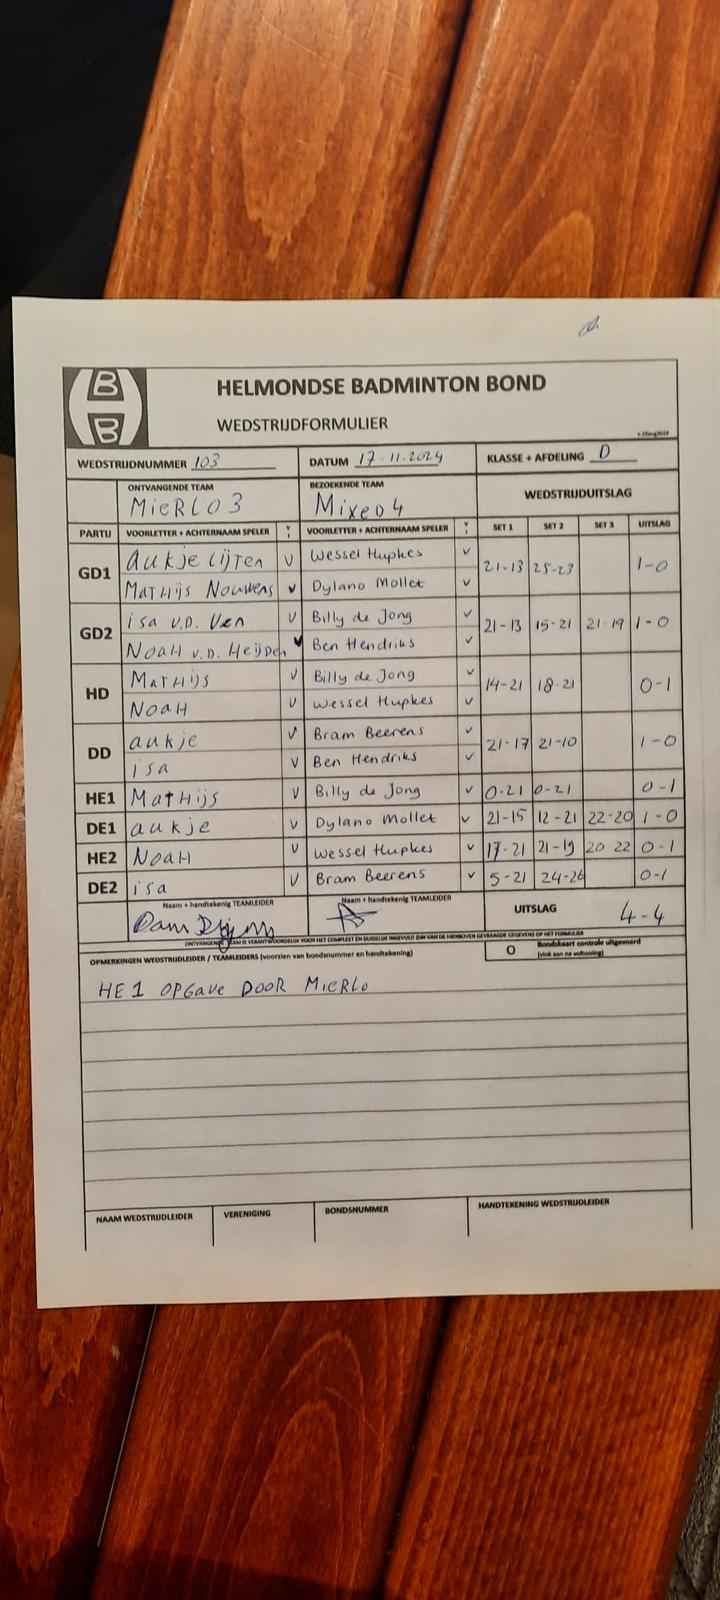 HELMONDSE BADMINTON BOND
WEDSTRIJDFORMULIER
WEDSTRIJDNUMMER 103 DATUM 17-11-2024 KLASSE + AFDELING D
ONTVANGENDE TEAM BEZOEKENDE TEAM WEDSTRIJDUITSLAG
MieRLO 3 Mixed 4
PARTIJ VOORLETTER + ACHTERNAAM SPELER VOORLETTER + ACHTERNAAM SPELER SET 1 SET 2 SET 3 UITSLAG
GD1 aukje Lijten V Wessel Hupkes V 21-13 25-23 1-0
Mathijs Nouwens V Dylano Mollet V
GD2 isa v.D. Ven V Billy de Jong V 21-13 15-21 21-19 1-0
NoaH v.D. Heijden V Ben Hendriks V
HD Mathijs V Billy de Jong V 14-21 18-21 0-1
NoaH V Wessel Hupkes V
DD aukje V Bram Beerens V 21-17 21-10 1-0
isa V Ben Hendriks V
HE1 Mathijs V Billy de Jong V 0-21 0-21 0-1
DE1 aukje V Dylano Mollet V 21-15 12-21 22-20 1-0
HE2 NoaH V Wessel Hupkes V 17-21 21-19 20 22 0-1
DE2 isa V Bram Beerens V 5-21 24-26 0-1
Naam + handtekenig TEAMLEIDER Naam + handtekenig TEAMLEIDER UITSLAG 4-4
OPMERKINGEN WEDSTRIJDLEIDER / TEAMLEIDERS (voorzien van bondsnummer en handtekening) O Bondskaart controle uitgevoerd
HE 1 OPGave DOOR MieRLo
NAAM WEDSTRIJDLEIDER VERENIGING BONDSNUMMER HANDTEKENING WEDSTRIJDLEIDER